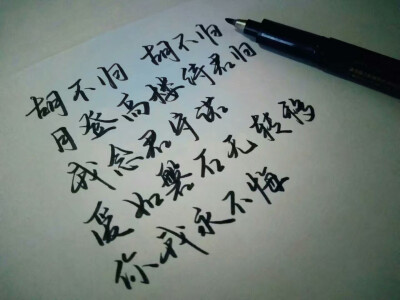 胡不归 胡不归
月登高楼倚君归
我念君守诺
爱如磐石无转移
你我永不悔